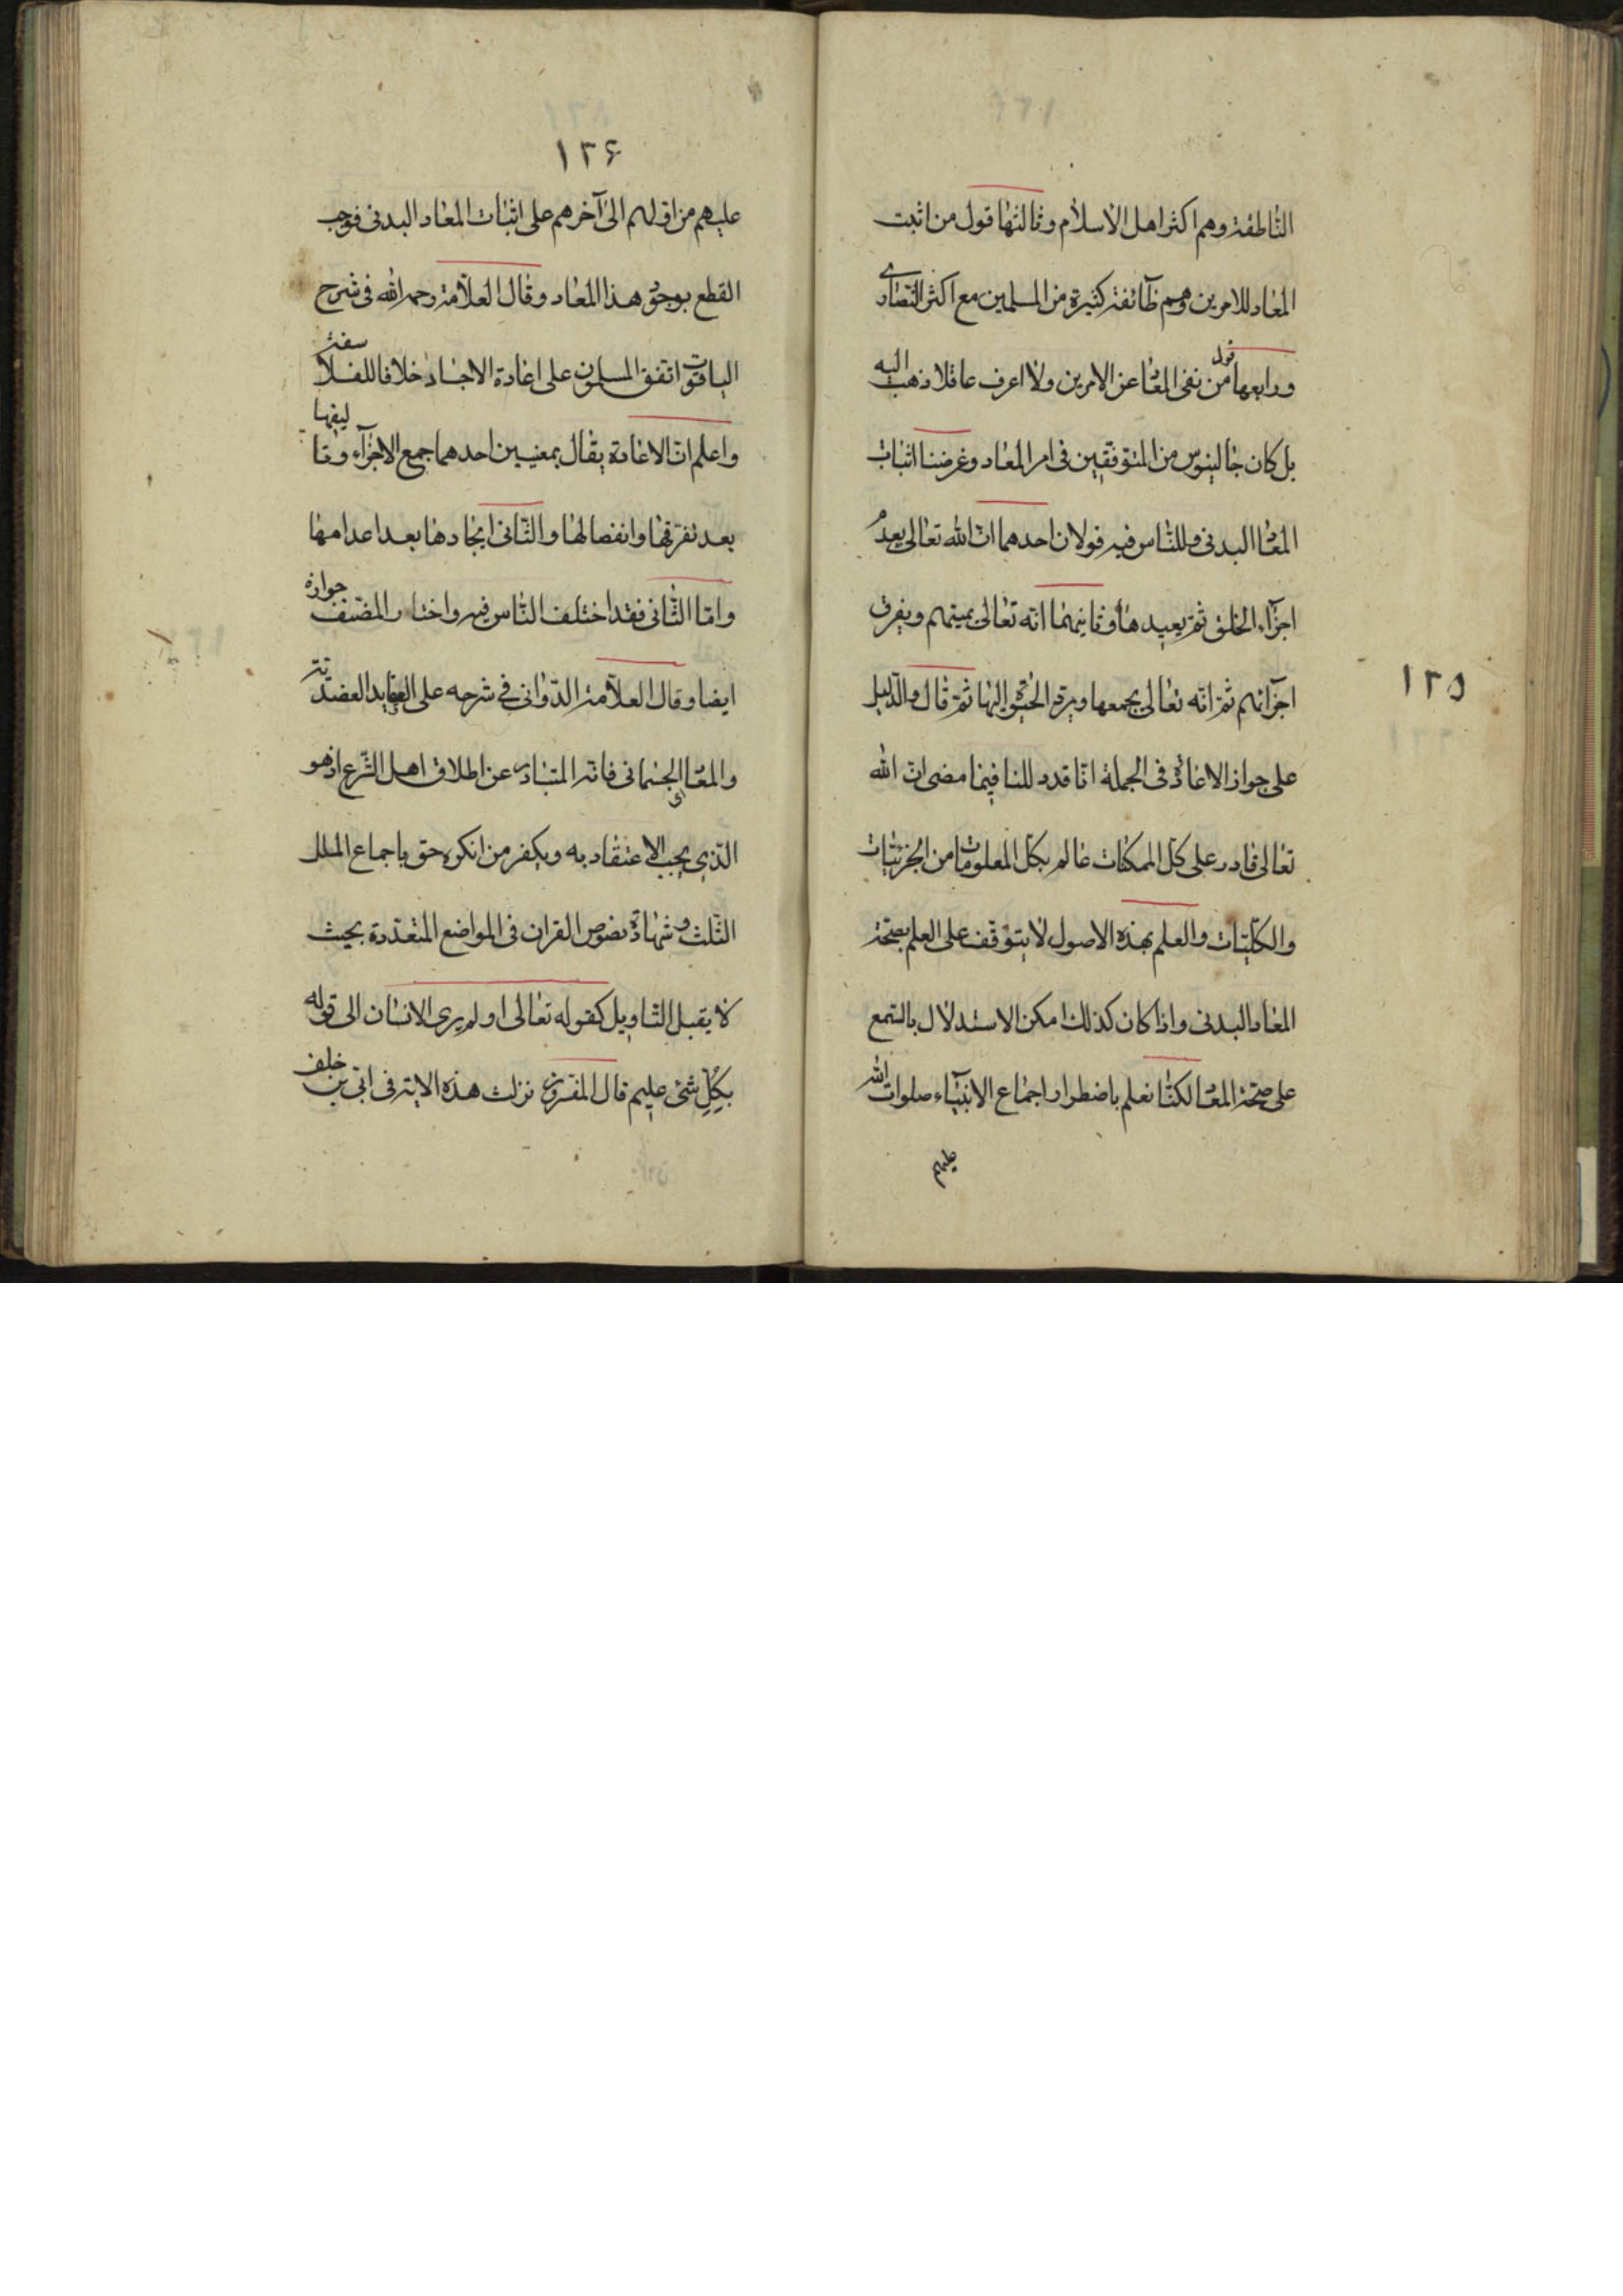 الناطقة وهم اكثر اهل الاسلام وثالثها قول من اثبت
المعاد للامرين وهم طآئفة كثيرة من المسلمين مع اكثر النصارى
ورابعها قول من نفى المعاد عن الامرين ولا اعرف عاقلا ذهب اليه
بل كان جالينوس من المتوقفين فى امر المعاد وغرضنا اثبات
المعاد البدنى وللناس فيه قولان احدهما ان الله تعالى يعدم
اجزآء الخلق ثم يعيدها وثانيهما انه تعالى يميتهم ويفرق
اجزآئهم ثم انه تعالى يجمعها ويرد الحيوة اليها ثم قال والدليل
على جواز الاعادة فى الجملة انا قد دللنا فيما مضى ان الله
تعالى قادر على كل الممكنات عالم بكل المعلومات من الجزئيات
والكليات والعلم بهذه الاصول لا يتوقف على العلم بصحة
المعاد البدنى واذا كان كذلك امكن الاستدلال بالسمع
على صحة المعاد لكنا نعلم باضطرار اجماع الانبيآء صلوات الله
عليهم
١٢٥
١٢۶
عليهم من اولهم الى آخرهم على اثبات المعاد البدنى فوجب
القطع بوجود هذا المعاد وقال العلامة رحمه الله فى شرح
الياقوت اتفق المسلمون على اعادة الاجساد خلافا للفلاسفة
واعلم ان الاعادة يقال بمعنيين احدهما جمع الاجزآء وتاليفها
بعد تفرقها وانفصالها والثانى ايجادها بعد اعدامها
واما الثانى فقد اختلف الناس فيه واختار المصنف جوازه
ايضا وقال العلامة الدوانى في شرحه على العقايد العضدية
والمعاد اى الجسمانى فانه المتبادر عن اطلاق اهل الشرع اذ هو
الذى يجب الاعتقاد به ويكفر من انكره حق باجماع الملل
الثلث وشهادة نصوص القران فى المواضع المتعددة بحيث
لا يقبل التاويل كقوله تعالى اولم يرى الانسان الى قوله
بكل شئ عليم قال المفسرون نزلت هذه الاية فى ابى بن خلف